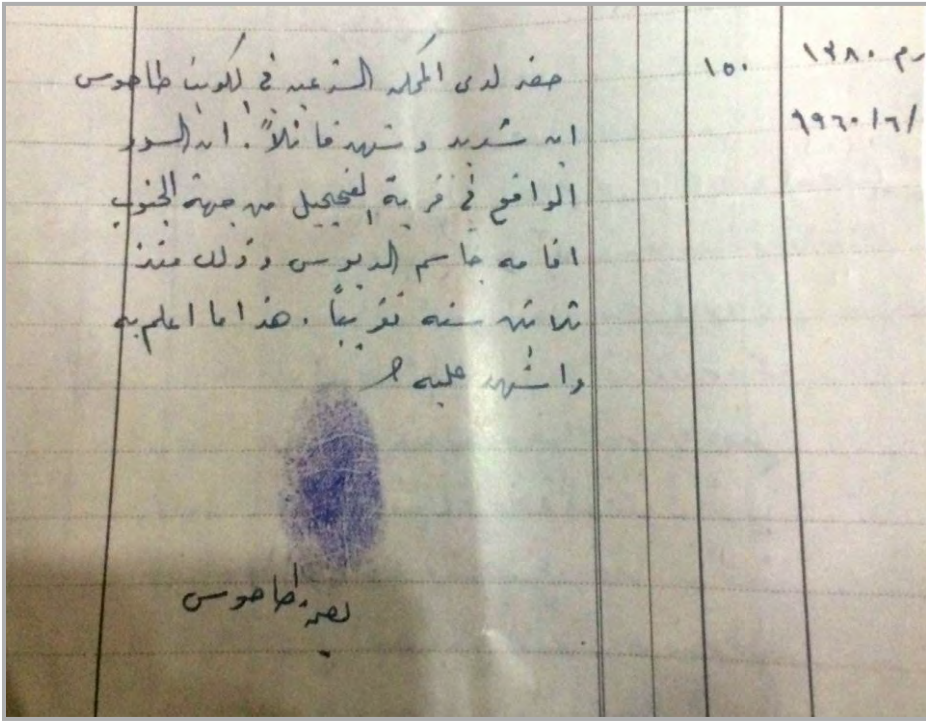 رم ١٣٨٠
١٥٠
/٦/١٩٦٠
حضر لدى المحكمة الشرعية في الكويت طاحوس
ابن شديد وشهد قائلاً. ان السور
الواقع في قرية الفحيحيل من جهة الجنوب
اقامه جاسم الدبوس وذلك منذ
ثلاثين سنه تقريباً. هذا ما اعلم به
واشهد عليه
بصمة طاحوس